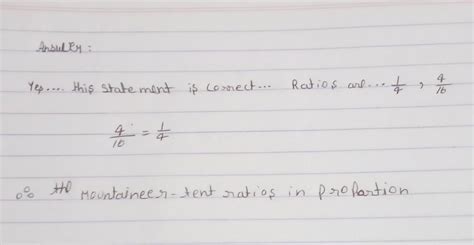 Answer:
Yes.... this statement is correct... Ratios are... 1/4, 4/16
4/16 = 1/4
∴ the Mountaineer-tent ratios in proportion